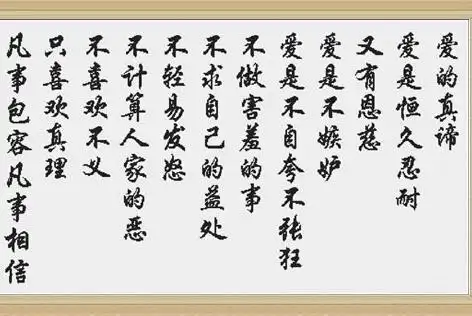 爱的真谛
爱是恒久忍耐
又有恩慈
爱是不嫉妒
爱是不自夸不张狂
不做害羞的事
不求自己的益处
不轻易发怒
不计算人家的恶
不喜欢不义
只喜欢真理
凡事包容凡事相信